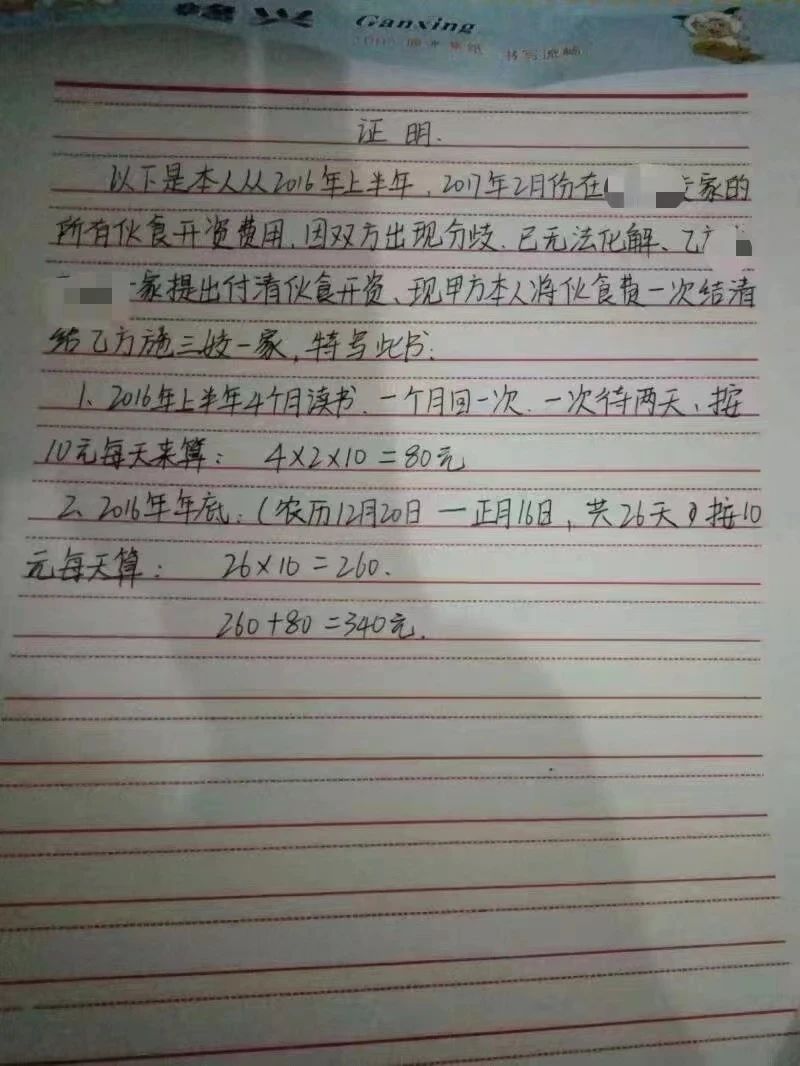 Ganxing
书写流畅
证明.
以下是本人从2016年上半年,2017年2月份在 家的
所有伙食开资费用,因双方出现分歧、已无法化解、乙方
一家提出付清伙食开资、现甲方本人将伙食费一次结清
给乙方施三妓一家,特写此书:
1、2016年上半年4个月读书、一个月回一次、一次待两天、按
10元每天来算: 4×2×10=80元
2、2016年年底:(农历12月20日—正月16日,共26天)按10
元每天算: 26×10=260.
260+80=340元.